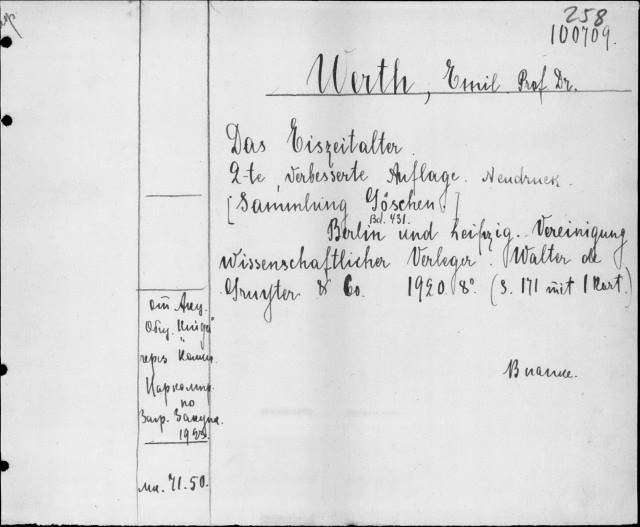 258
100709.
Werth, Emil Prof Dr.
Das Eiszeitalter.
2-te verbesserte Auflage. Neudruck.
[Sammlung Göschen]
Bd. 431.
Berlin und Leipzig. Vereinigung
wissenschaftlicher Verleger. Walter de
Gruyter & Co. 1920. 8°. (S. 171 mit 1 Kart.)
В папке.
от Акц.
Общ. "Книга"
через
Наркомпр.
по
Загр. Закупк.
мк. 71.50.